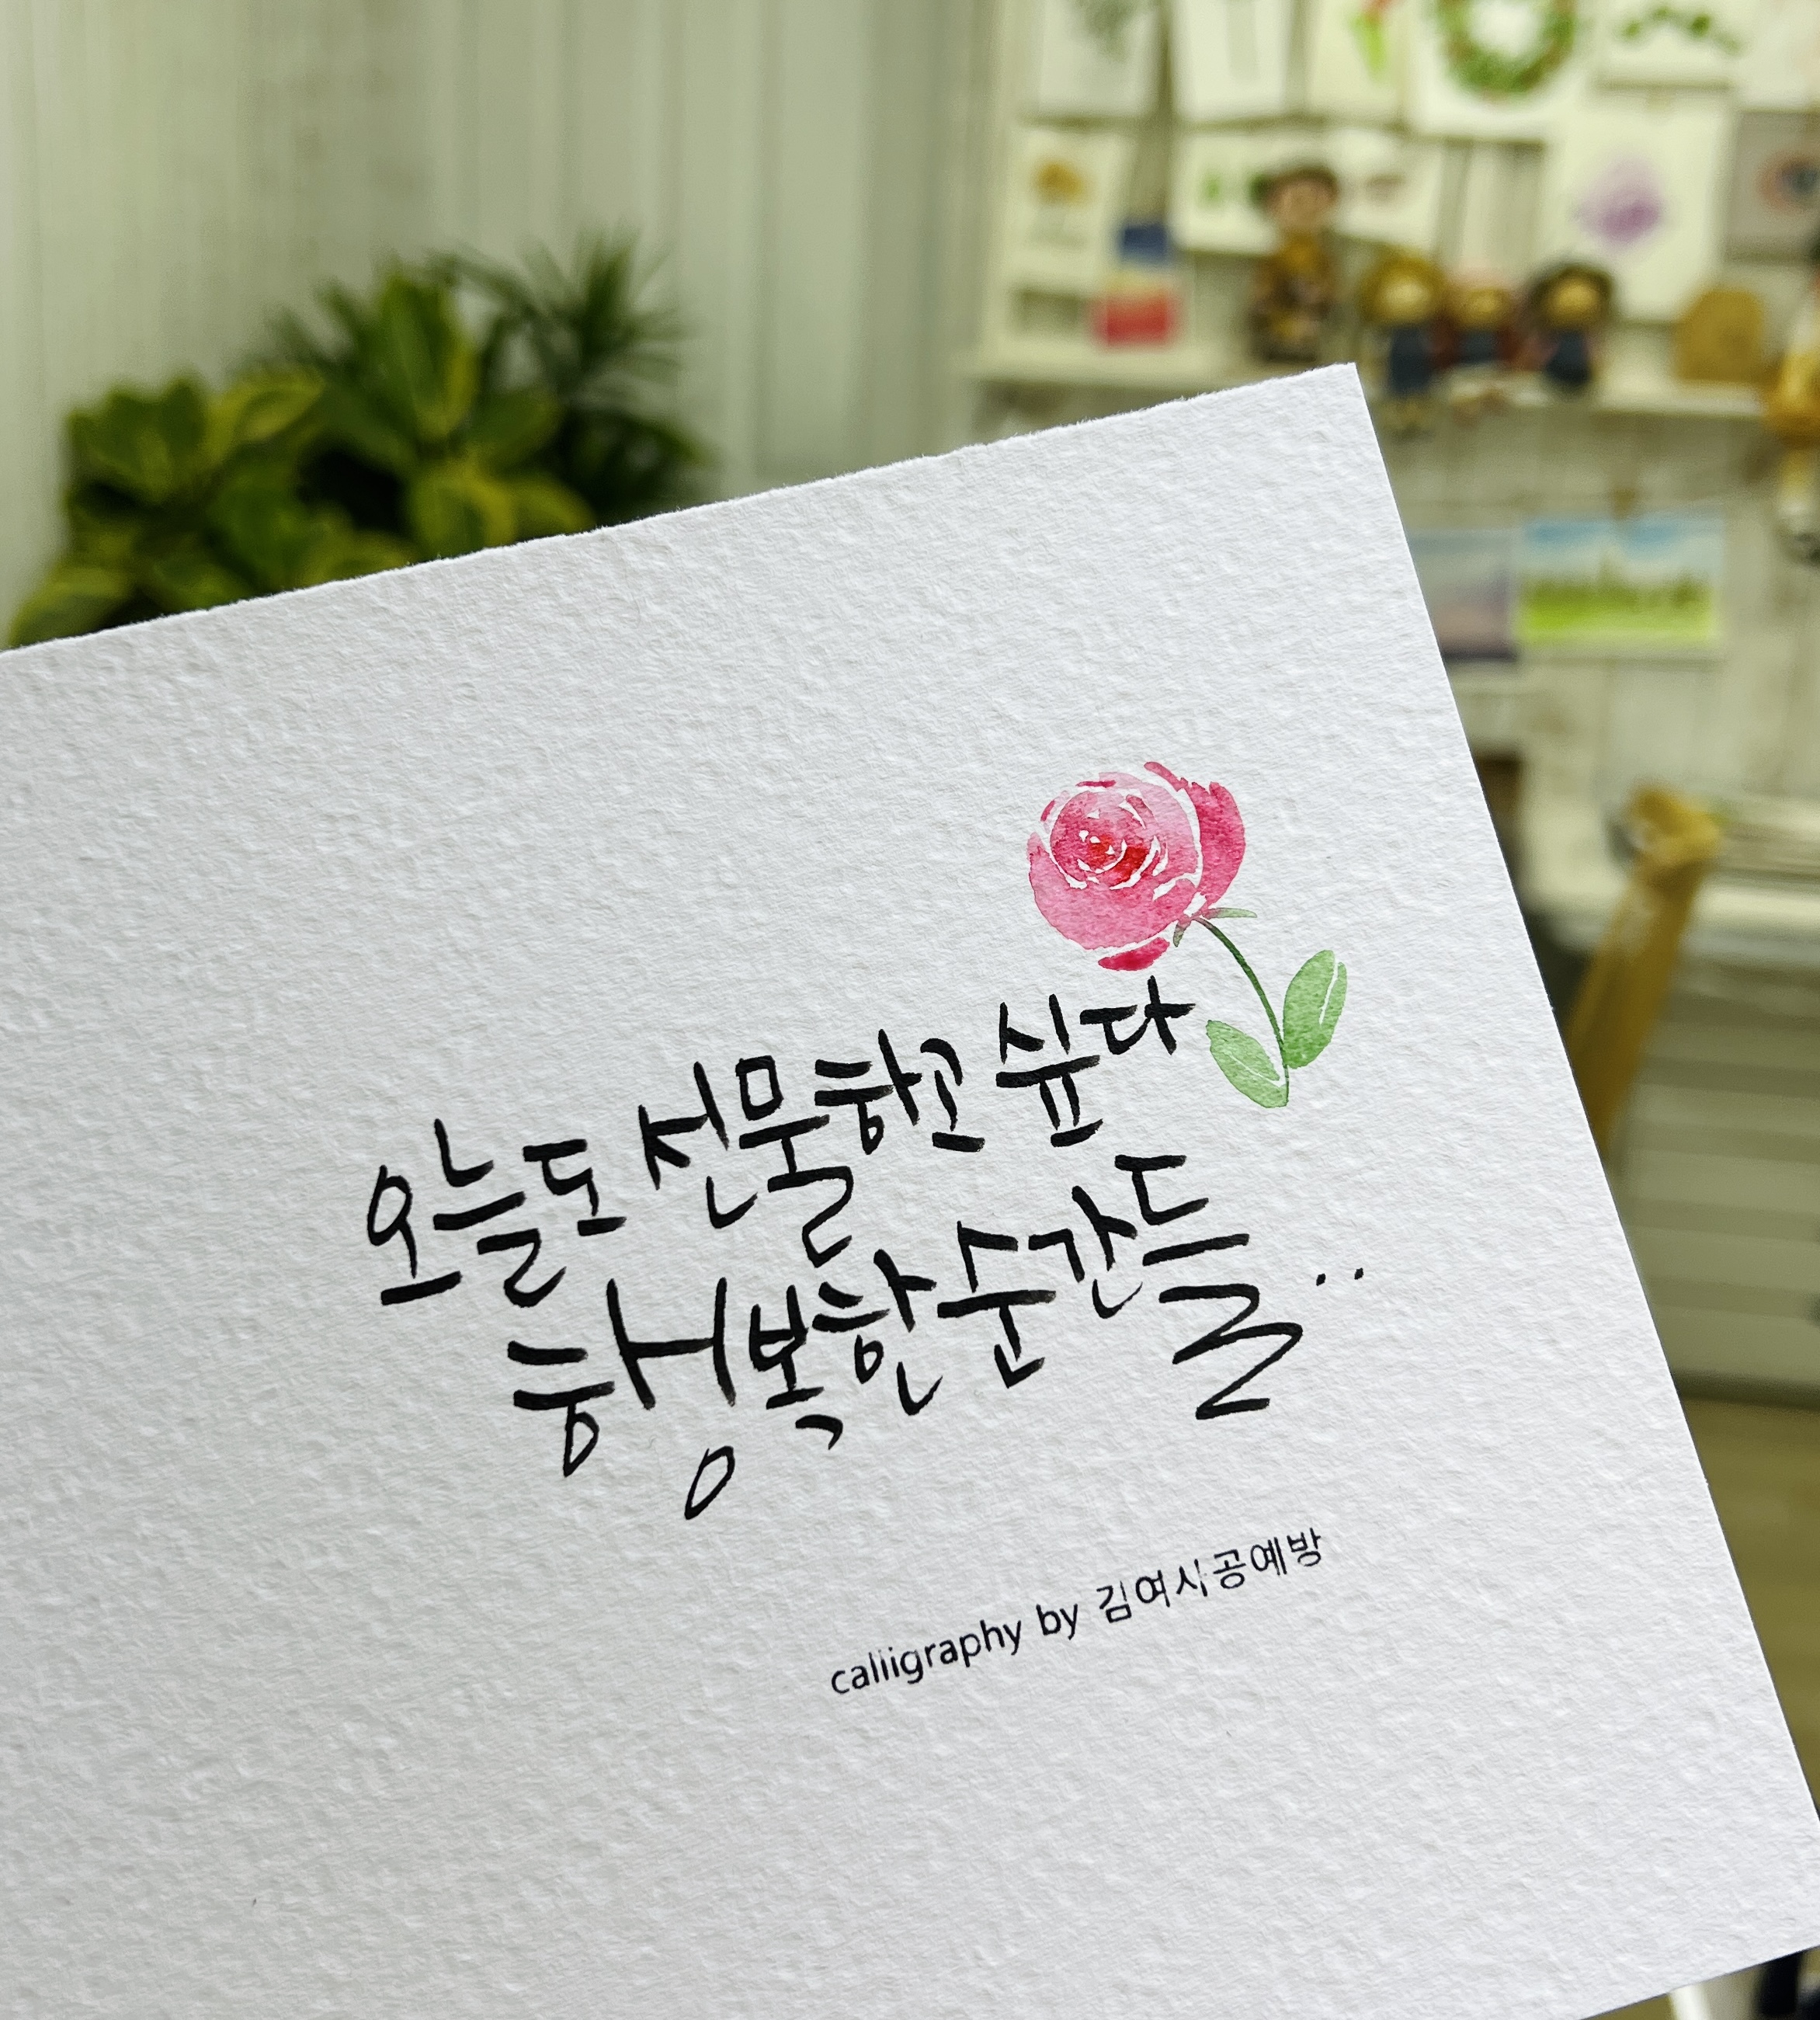 오늘도 선물하고 싶다
행복한 순간들..
calligraphy by 김여시공예방